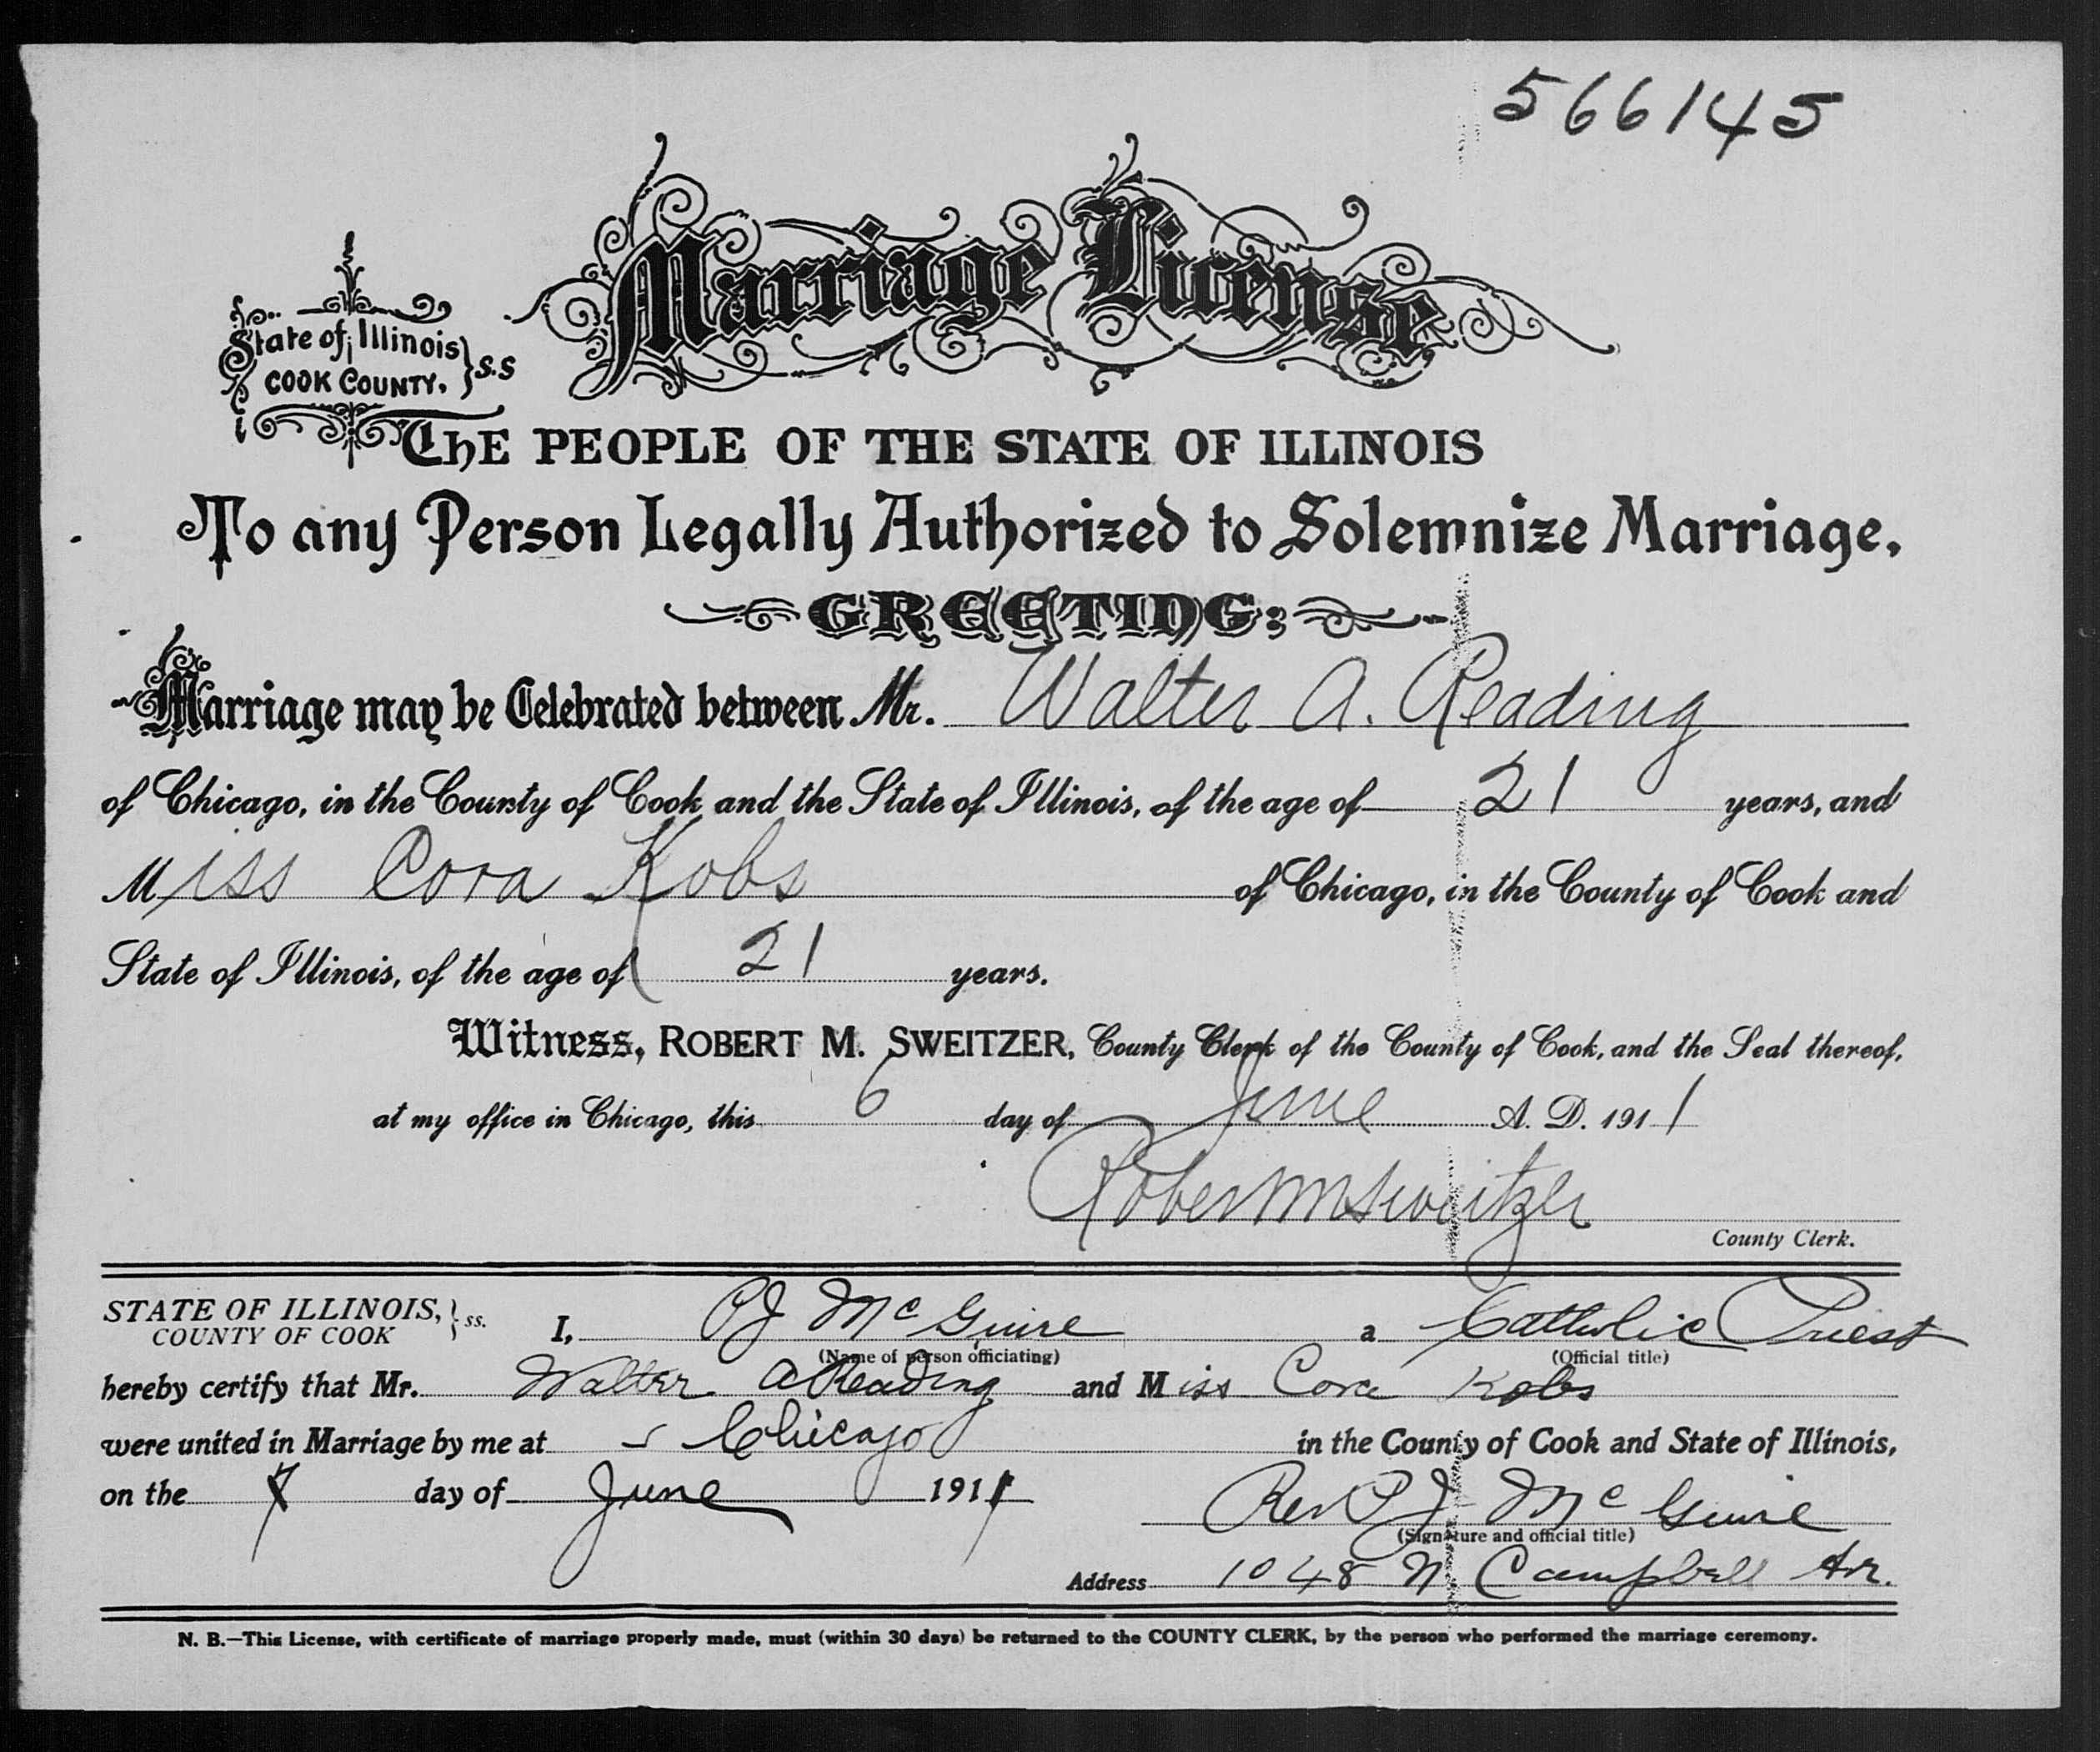 566145
Marriage License
State of Illinois } S.S
COOK COUNTY.
THE PEOPLE OF THE STATE OF ILLINOIS
To any Person Legally Authorized to Solemnize Marriage,
GREETING:
Marriage may be Celebrated between Mr. Walter A. Reading
of Chicago, in the County of Cook and the State of Illinois, of the age of 21 years, and
Miss Cora Kobs of Chicago, in the County of Cook and
State of Illinois, of the age of 21 years.
Witness, ROBERT M. SWEITZER, County Clerk of the County of Cook, and the Seal thereof,
at my office in Chicago, this 6 day of June A. D. 1911
Robert M Sweitzer
County Clerk.
STATE OF ILLINOIS, } ss.
COUNTY OF COOK
I, PJ McGuire a Catholic Priest
(Name of person officiating) (Official title)
hereby certify that Mr. Walter A Reading and Miss Cora Kobs
were united in Marriage by me at Chicago in the County of Cook and State of Illinois,
on the 7 day of June 1911 Rev P J McGuire
(Signature and official title)
Address 1048 N Campbell Av.
N. B.—This License, with certificate of marriage properly made, must (within 30 days) be returned to the COUNTY CLERK, by the person who performed the marriage ceremony.